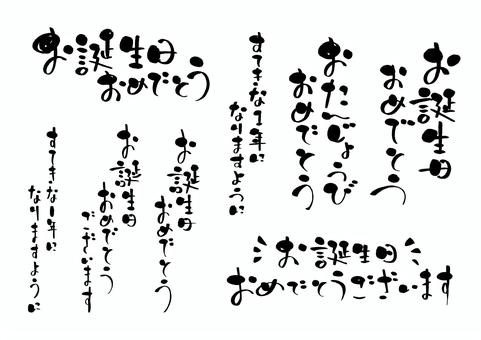 お誕生日
おめでとう
お誕生日
おめでとう
おたんじょうび
おめでとう
すてきな1年に
なりますように
お誕生日
おめでとう
お誕生日
おめでとう
ございます
すてきな1年に
なりますように
お誕生日
おめでとうございます